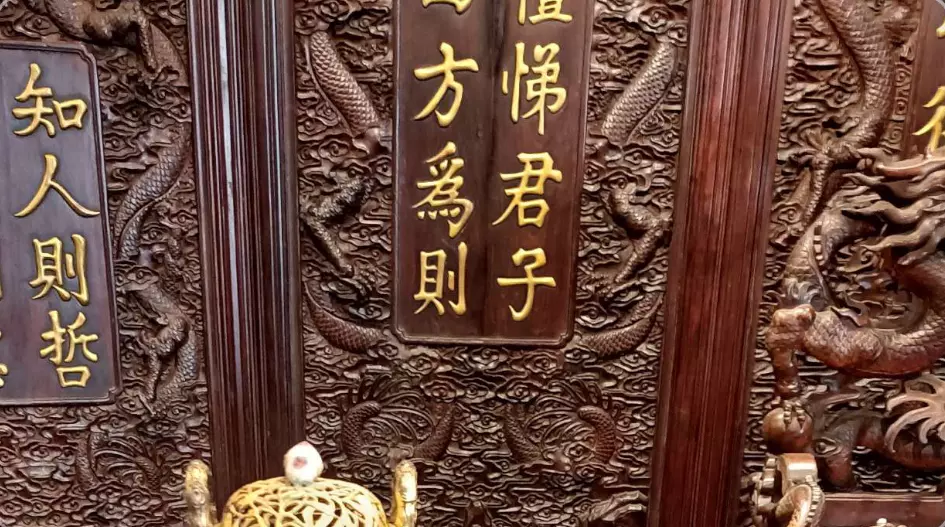 悌君子
方爲則
知人則哲